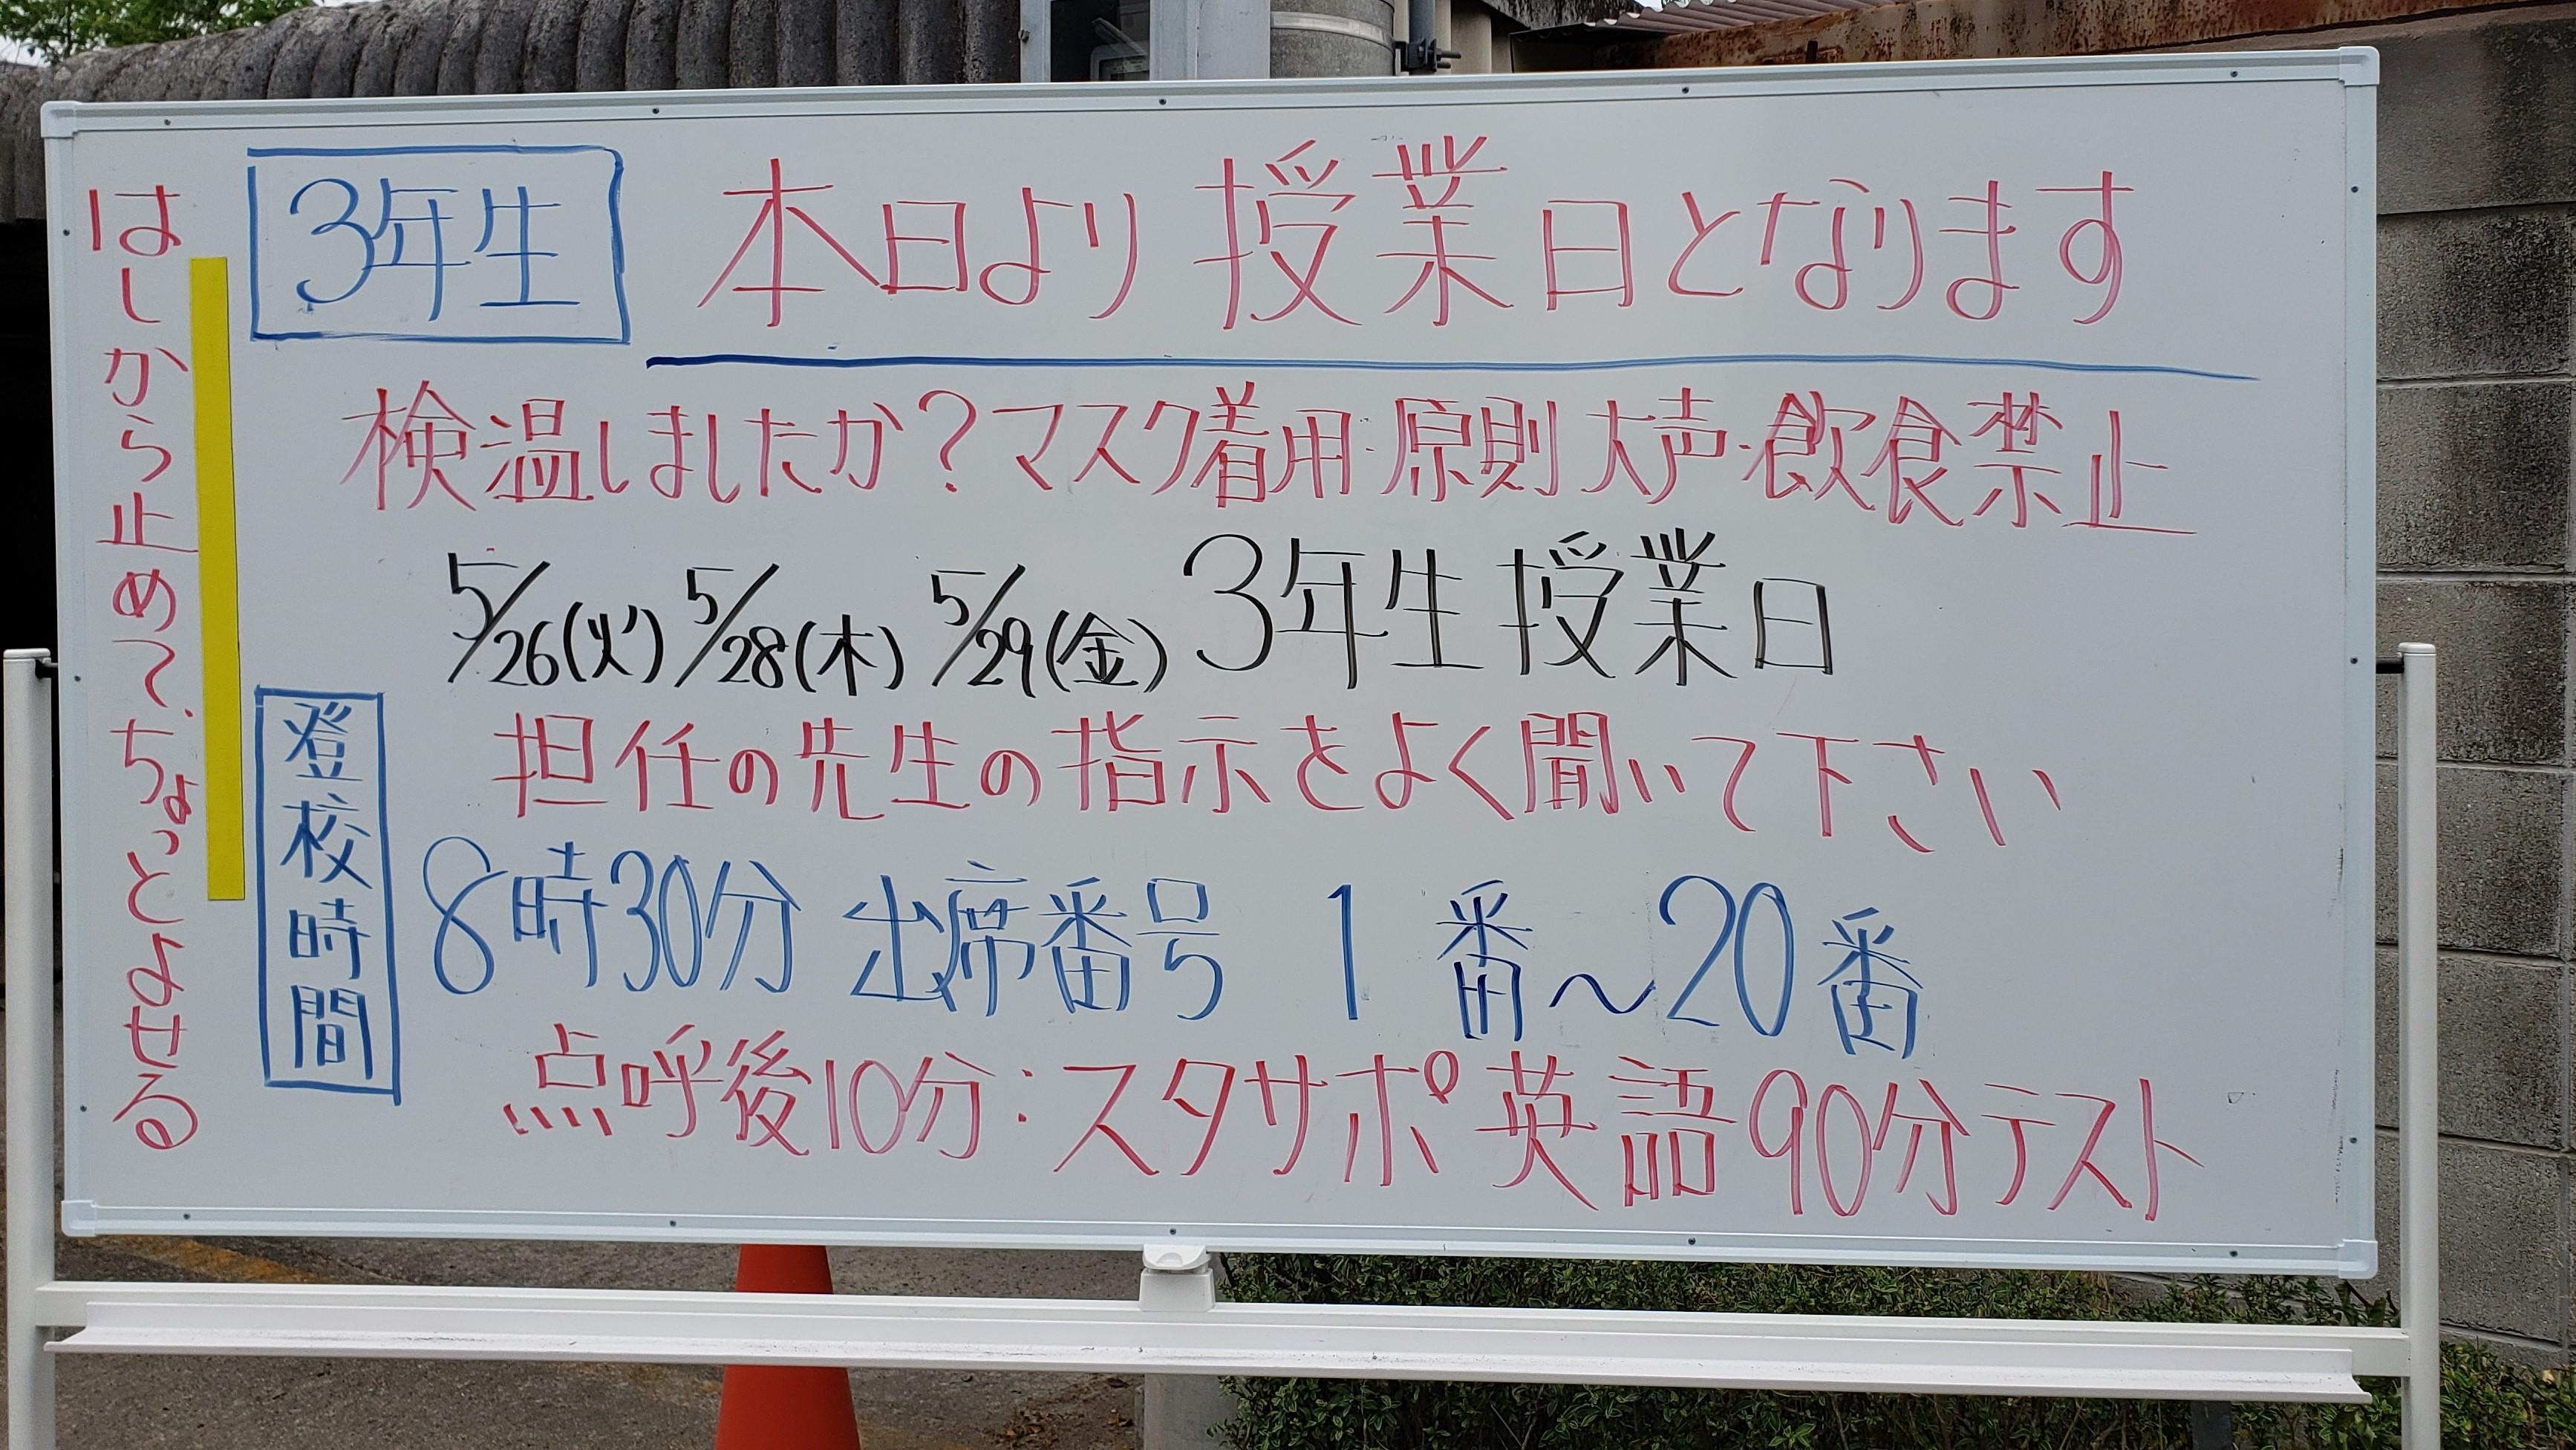 3年生 本日より授業日となります
検温しましたか?マスク着用・原則大声・飲食禁止
5/26(火) 5/28(木) 5/29(金) 3年生授業日
担任の先生の指示をよく聞いて下さい
登校時間
8時30分 出席番号 1番〜20番
点呼後10分:スタサポ英語90分テスト
はしから止めて、ちょっとよせる